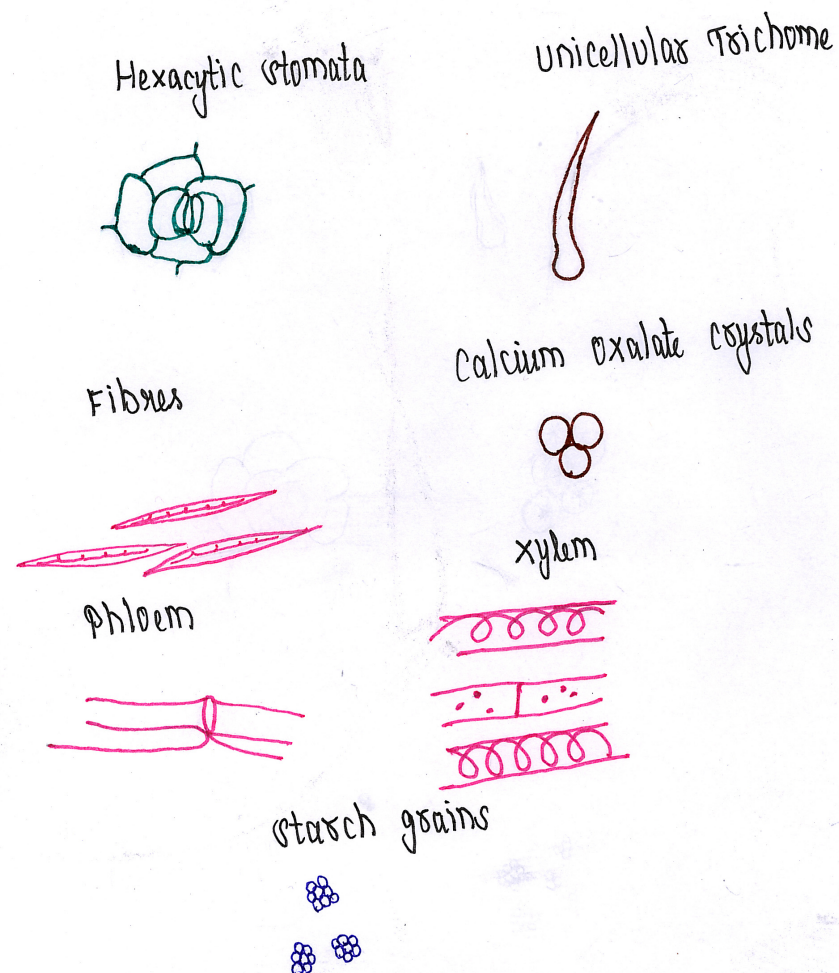 Hexacytic stomata
unicellular Trichome
Calcium oxalate crystals
Fibres
xylem
phloem
starch grains